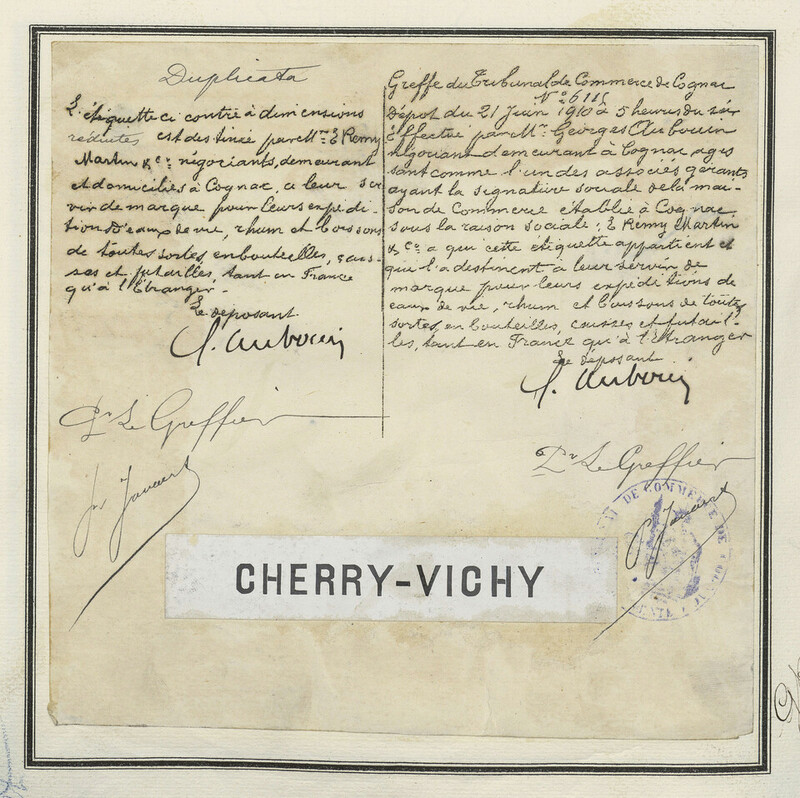 Duplicata
L'étiquette ci contre à dimensions
réduites est destinée par Mrs E Remy
Martin & Cie négociants, demeurant
et domiciliés à Cognac, a leur ser
vir de marque, pour leurs expédi-
tions d'eaux de vie, rhum et boissons
de toutes sortes, en bouteilles, cais-
ses et futailles, tant en France
qu'à l'Etranger.
Le deposant
G. Auboin
Pr Le Greffier
Greffe du Tribunal de Commerce de Cognac
No 6115
Dépot du 21 Juin 1910 à 5 heures du soir
Effectué par Mr Georges Auboin
négociant demeurant à Cognac, agis
sant comme l'un des associés gérants
ayant la signature sociale de la mai-
son de Commerce établie à Cognac
sous la raison sociale: E Rémy Martin
& Cie a qui cette étiquette appartient et
qui l'a destinent à leur servir de
marque pour leurs expéditions de
eaux de vie, rhum et boissons de toutes
sortes, en bouteilles, caisses et futail-
les, tant en France qu'à l'Etranger
Le deposant
G. Auboin
Pr Le Greffier
DE COMMERCE DE
CHERRY-VICHY